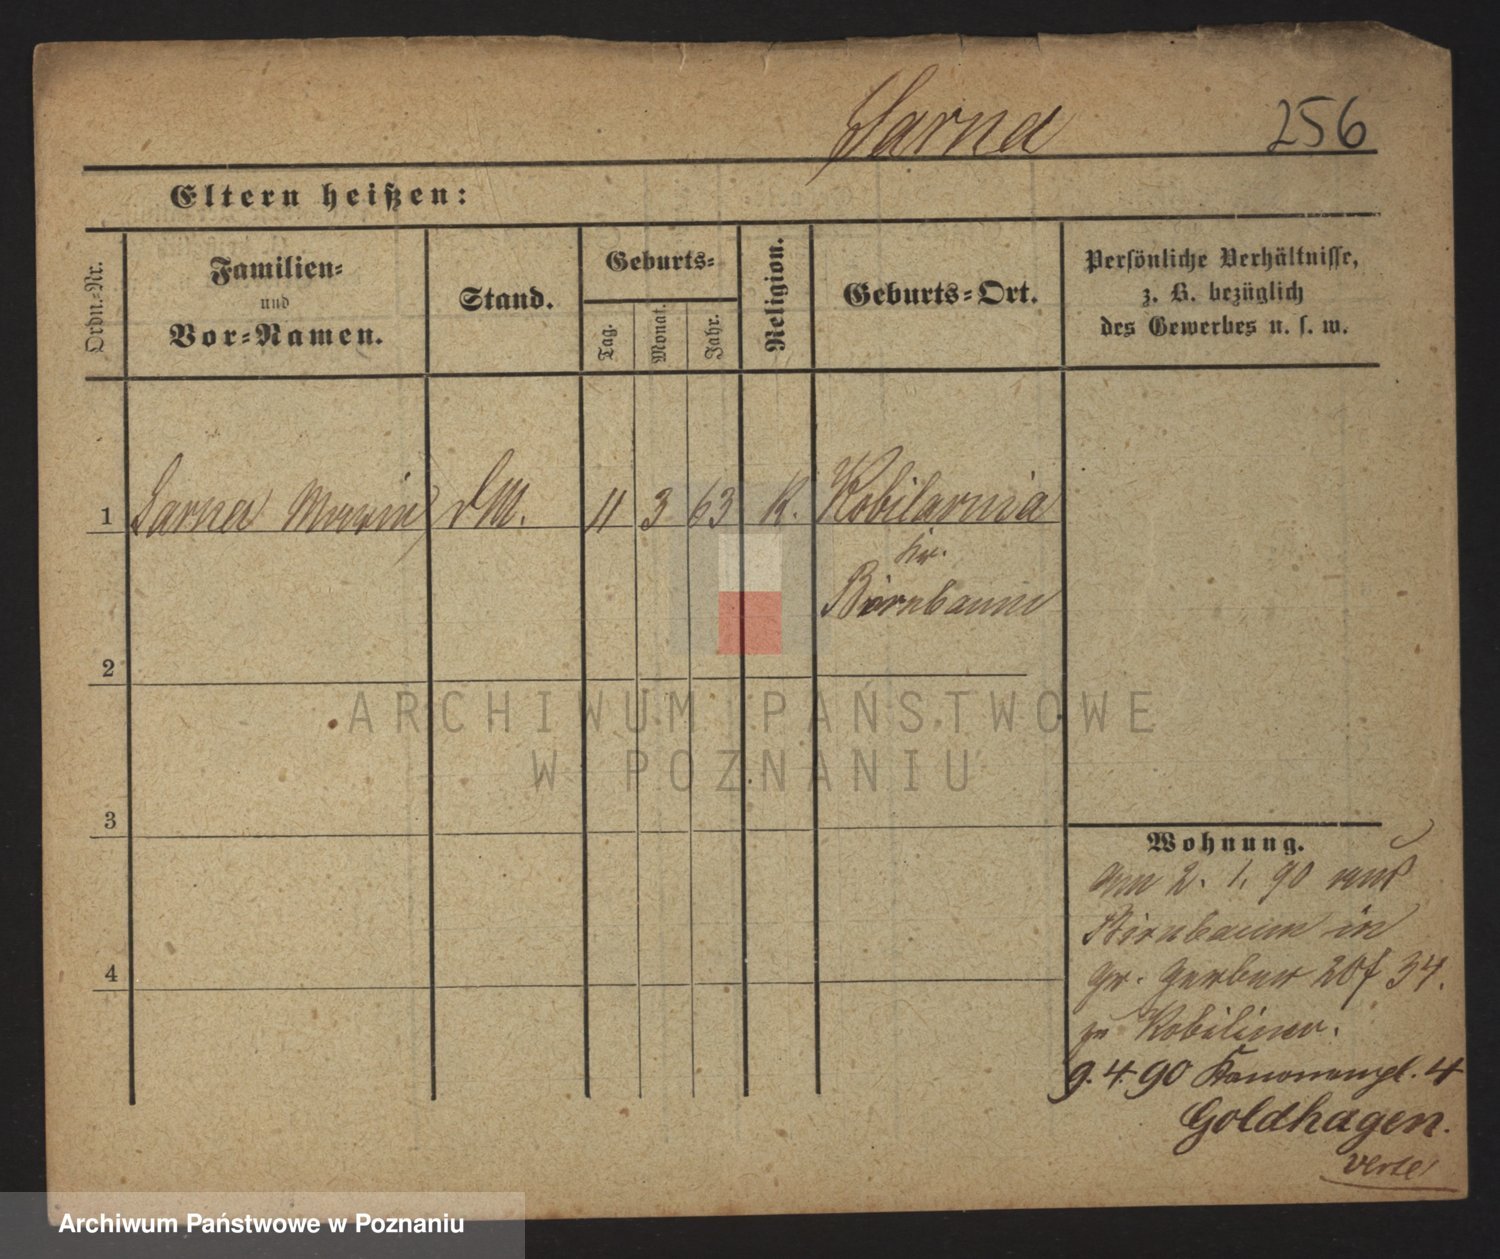 Sarna 256
Eltern heißen:
Ordn.-Nr.
Familien-
und
Vor-Namen.
Stand.
Geburts-
Tag.
Monat.
Jahr.
Religion.
Geburts-Ort.
Persönliche Verhältnisse,
z. B. bezüglich
des Gewerbes u. s. w.
1 Sarna Maria dM. 11 3 63 K. Kobilarnia
Kr.
Birnbaum
2
3
4
Wohnung.
am 2. 1. 90 aus
Birnbaum in
gr. Gerber 34.
zu
9.4.90 Kanonenpl. 4
Goldhagen.
verte
ARCHIWUM PAŃSTWOWE
W POZNANIU
Archiwum Państwowe w Poznaniu